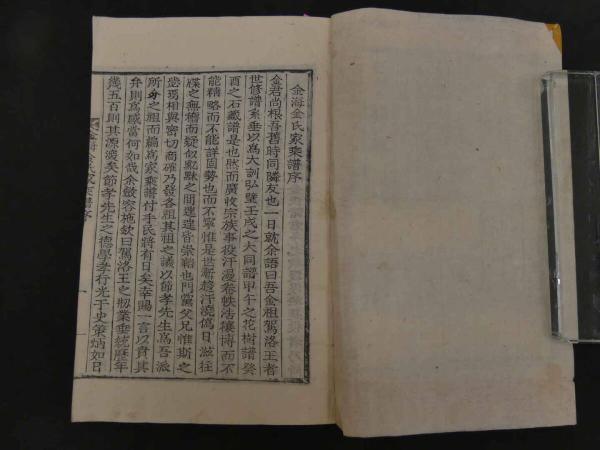 金海金氏家乘譜序
金君尚根吾舊時同隣友也一日就余語曰吾金祖駕洛王者
世修譜系垂以爲大訓弘璧壬戌之大同譜甲午之花樹譜癸
酉之石藏譜是也然而廣收宗族事役汗漫卷帙浩穰博而不
能精略而不能詳固勢也而不寧惟是世漸趍汗漫僞日滋往
牒之無稽而疑似黜黩之間遑遑皆崇韜也門黨父兄惟斯之
惄焉相與密切商確乃發各祖其祖之議以節孝先生爲吾派
所分之祖而編爲家乘譜付手氏將有日矣幸賜一言以賁其
弁則爲感當何如哉余斂容拖欽曰駕洛王之刱業垂統歷年
幾五百則其源渡矣節孝先生之德學孝行光于史策炳如日